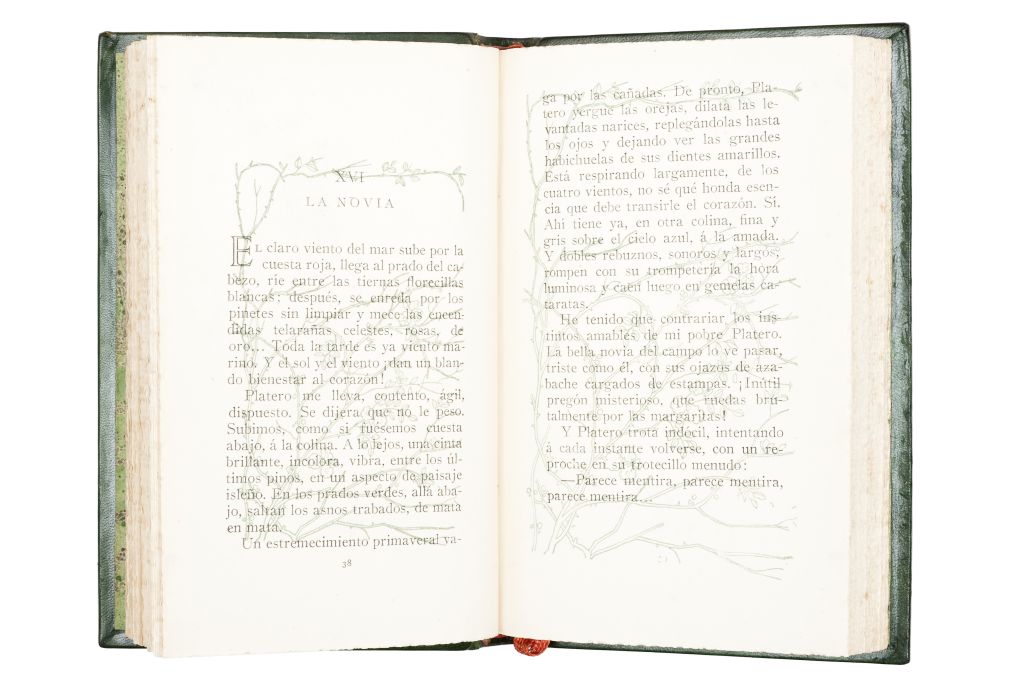 XVI
LA NOVIA
EL claro viento del mar sube por la
cuesta roja, llega al prado del ca-
bezo, ríe entre las tiernas florecillas
blancas; después, se enreda por los
pinetes sin limpiar y mece las encen-
didas telarañas celestes, rosas, de
oro... Toda la tarde es ya viento ma-
rino. Y el sol y el viento ¡dan un blan-
do bienestar al corazón!
Platero me lleva, contento, ágil,
dispuesto. Se dijera que no le peso.
Subimos, como si fuésemos cuesta
abajo, á la colina. A lo lejos, una cinta
brillante, incolora, vibra, entre los úl-
timos pinos, en un aspecto de paisaje
isleño. En los prados verdes, allá aba-
jo, saltan los asnos trabados, de mata
en mata.
Un estremecimiento primaveral va-
38
ga por las cañadas. De pronto, Pla-
tero yergue las orejas, dilata las le-
vantadas narices, replegándolas hasta
los ojos y dejando ver las grandes
habichuelas de sus dientes amarillos.
Está respirando largamente, de los
cuatro vientos, no sé qué honda esen-
cia que debe transirle el corazón. Sí.
Ahí tiene ya, en otra colina, fina y
gris sobre el cielo azul, á la amada.
Y dobles rebuznos, sonoros y largos,
rompen con su trompetería la hora
luminosa y caen luego en gemelas ca-
taratas.
He tenido que contrariar los ins-
tintos amables de mi pobre Platero.
La bella novia del campo lo ve pasar,
triste como él, con sus ojazos de aza-
bache cargados de estampas. ¡Inútil
pregón misterioso, que ruedas bru-
talmente por las margaritas!
Y Platero trota indócil, intentando
á cada instante volverse, con un re-
proche en su trotecillo menudo:
—Parece mentira, parece mentira,
parece mentira...